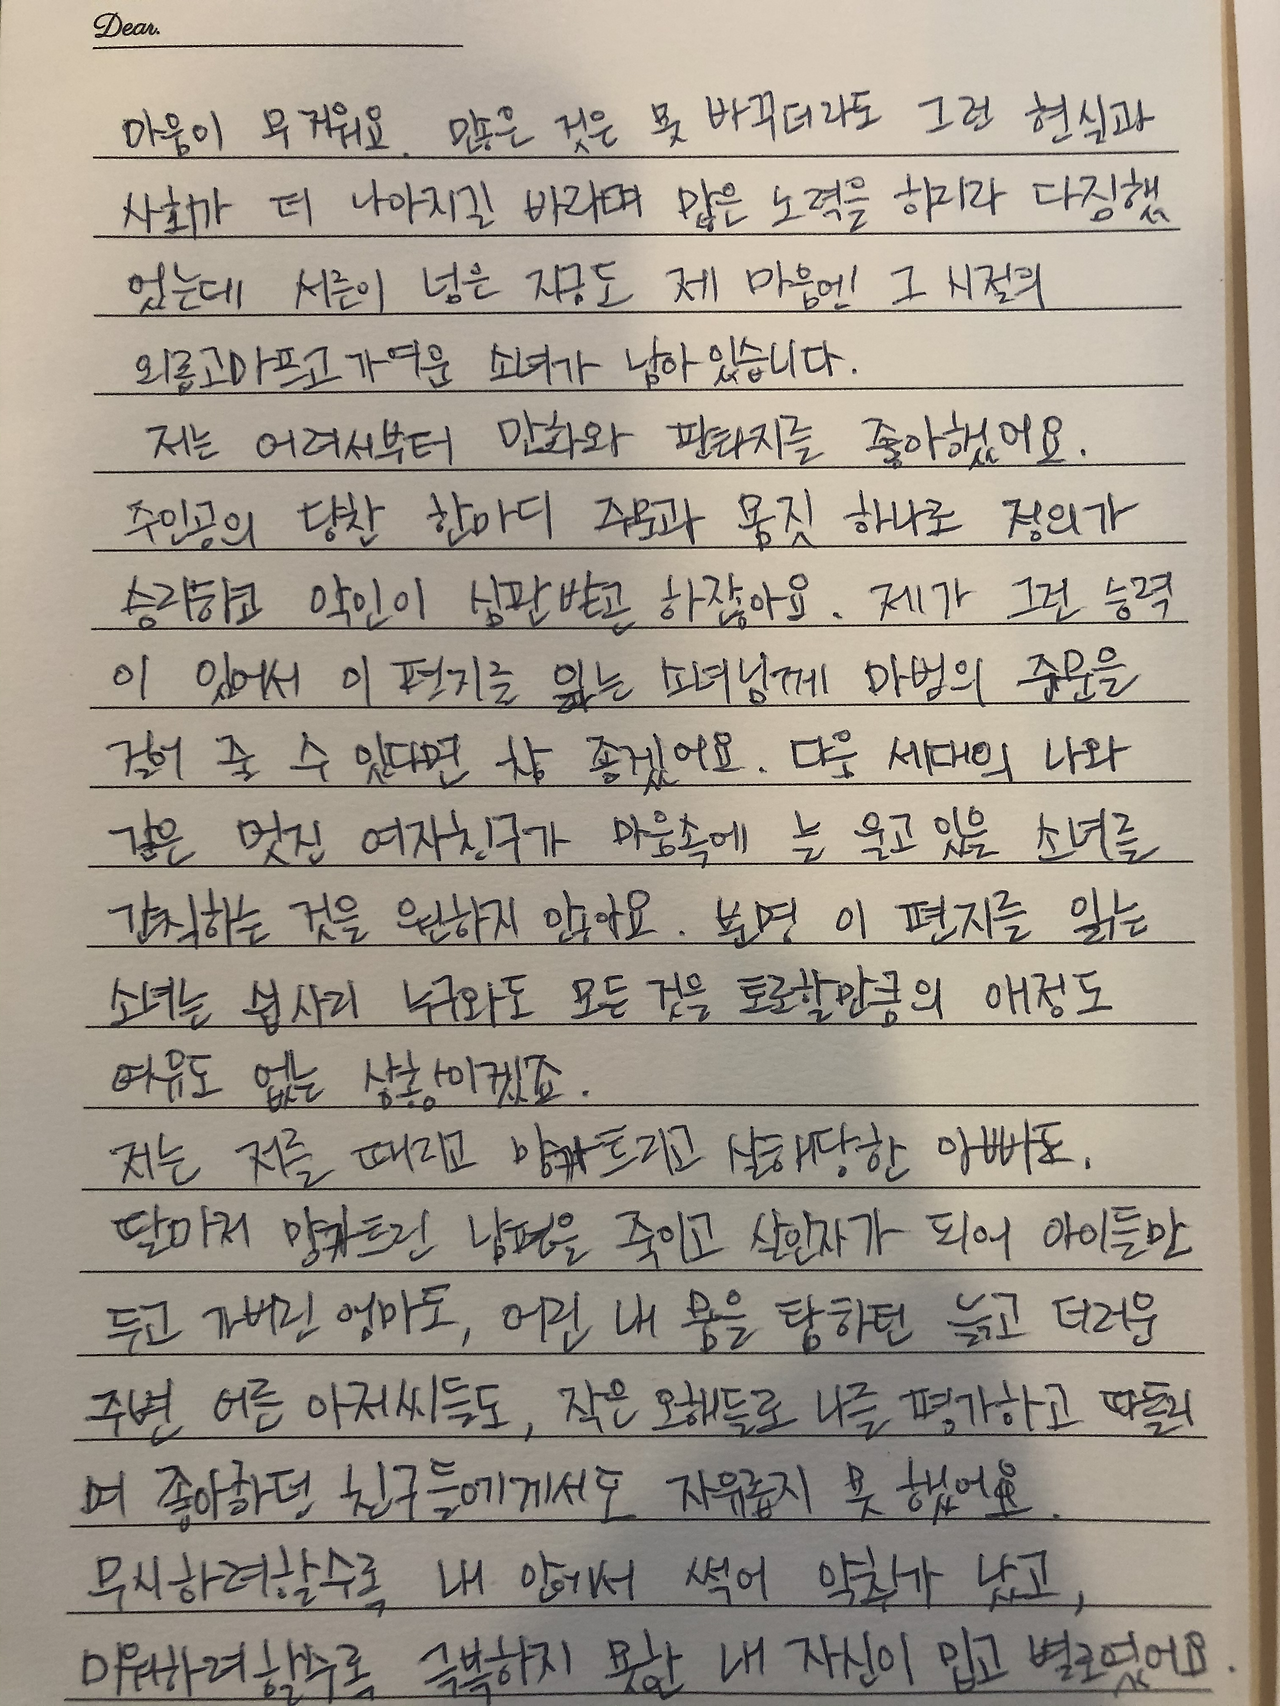 Dear.
마음이 무거워요. 많은 것은 못 바꾸더라도 그런 현실과
사회가 더 나아지길 바라며 많은 노력을 하리라 다짐했
었는데 서른이 넘은 지금도 제 마음엔 그 시절의
외롭고아프고가여운 소녀가 남아있습니다.
저는 어려서부터 만화와 판타지를 좋아했어요.
주인공의 당찬 한마디 주문과 몸짓 하나로 정의가
승리하고 악인이 심판받곤 하잖아요. 제가 그런 능력
이 있어서 이 편지를 읽는 소녀님께 마법의 주문을
걸어 줄 수 있다면 참 좋겠어요. 다음 세대의 나와
같은 멋진 여자친구가 마음속에 늘 울고있을 소녀를
간직하는 것을 원하지 않아요. 분명 이 편지를 읽는
소녀는 쉽사리 누구와도 모든것을 토로할만큼의 애정도
여유도 없는 상황이겠죠.
저는 저를 때리고 망가트리고 살해당한 아빠도,
딸마저 망가트린 남편을 죽이고 살인자가 되어 아이들만
두고 가버린 엄마도, 어린 내 몸을 탐하던 늙고 더러운
주변 어른 아저씨들도, 작은 오해들로 나를 평가하고 따돌리
며 좋아하던 친구들에게서도 자유롭지 못 했어요.
무시하려할수록 내 안에서 썩어 악취가 났고,
미워하려할수록 극복하지 못한 내 자신이 밉고 별로였어요.